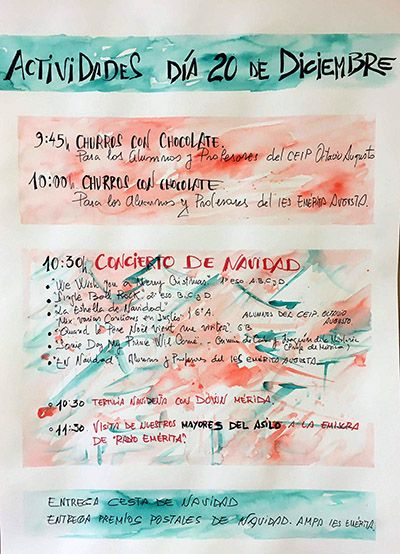 ACTIVIDADES DÍA 20 DE DICIEMBRE
9:45h CHURROS CON CHOCOLATE.
Para los Alumnos y Profesores del CEIP Octavio Augusto
10:00h CHURROS CON CHOCOLATE
Para los Alumnos y Profesores del IES EMÉRITA AUGUSTA.
10:30h CONCIERTO DE NAVIDAD
"We Wish you a Merry Cristmas" 1º ESO A.B.C y D
"Jingle Bell Rock" 2º ESO B.C y D
"La Estrella de Navidad"
"Mix varias Canciones en Inglés" 6ºA. ALUMNOS DEL CEIP. OCTAVIO AUGUSTO
"Quand le Père Noël vient me visiter" 5B
"Some Day My Prince Will Come"
"EN Navidad" Alumnos y Profesores del IES EMÉRITA AUGUSTA
10:30 TERTULIA NAVIDEÑA CON DOWN MÉRIDA.
11:30 VISITA DE NUESTROS MAYORES DEL ASILO A LA EMISORA
DE "RADIO EMÉRITA".
ENTREGA CESTA DE NAVIDAD
ENTREGA PREMIOS POSTALES DE NAVIDAD. AMPA IES EMÉRITA.